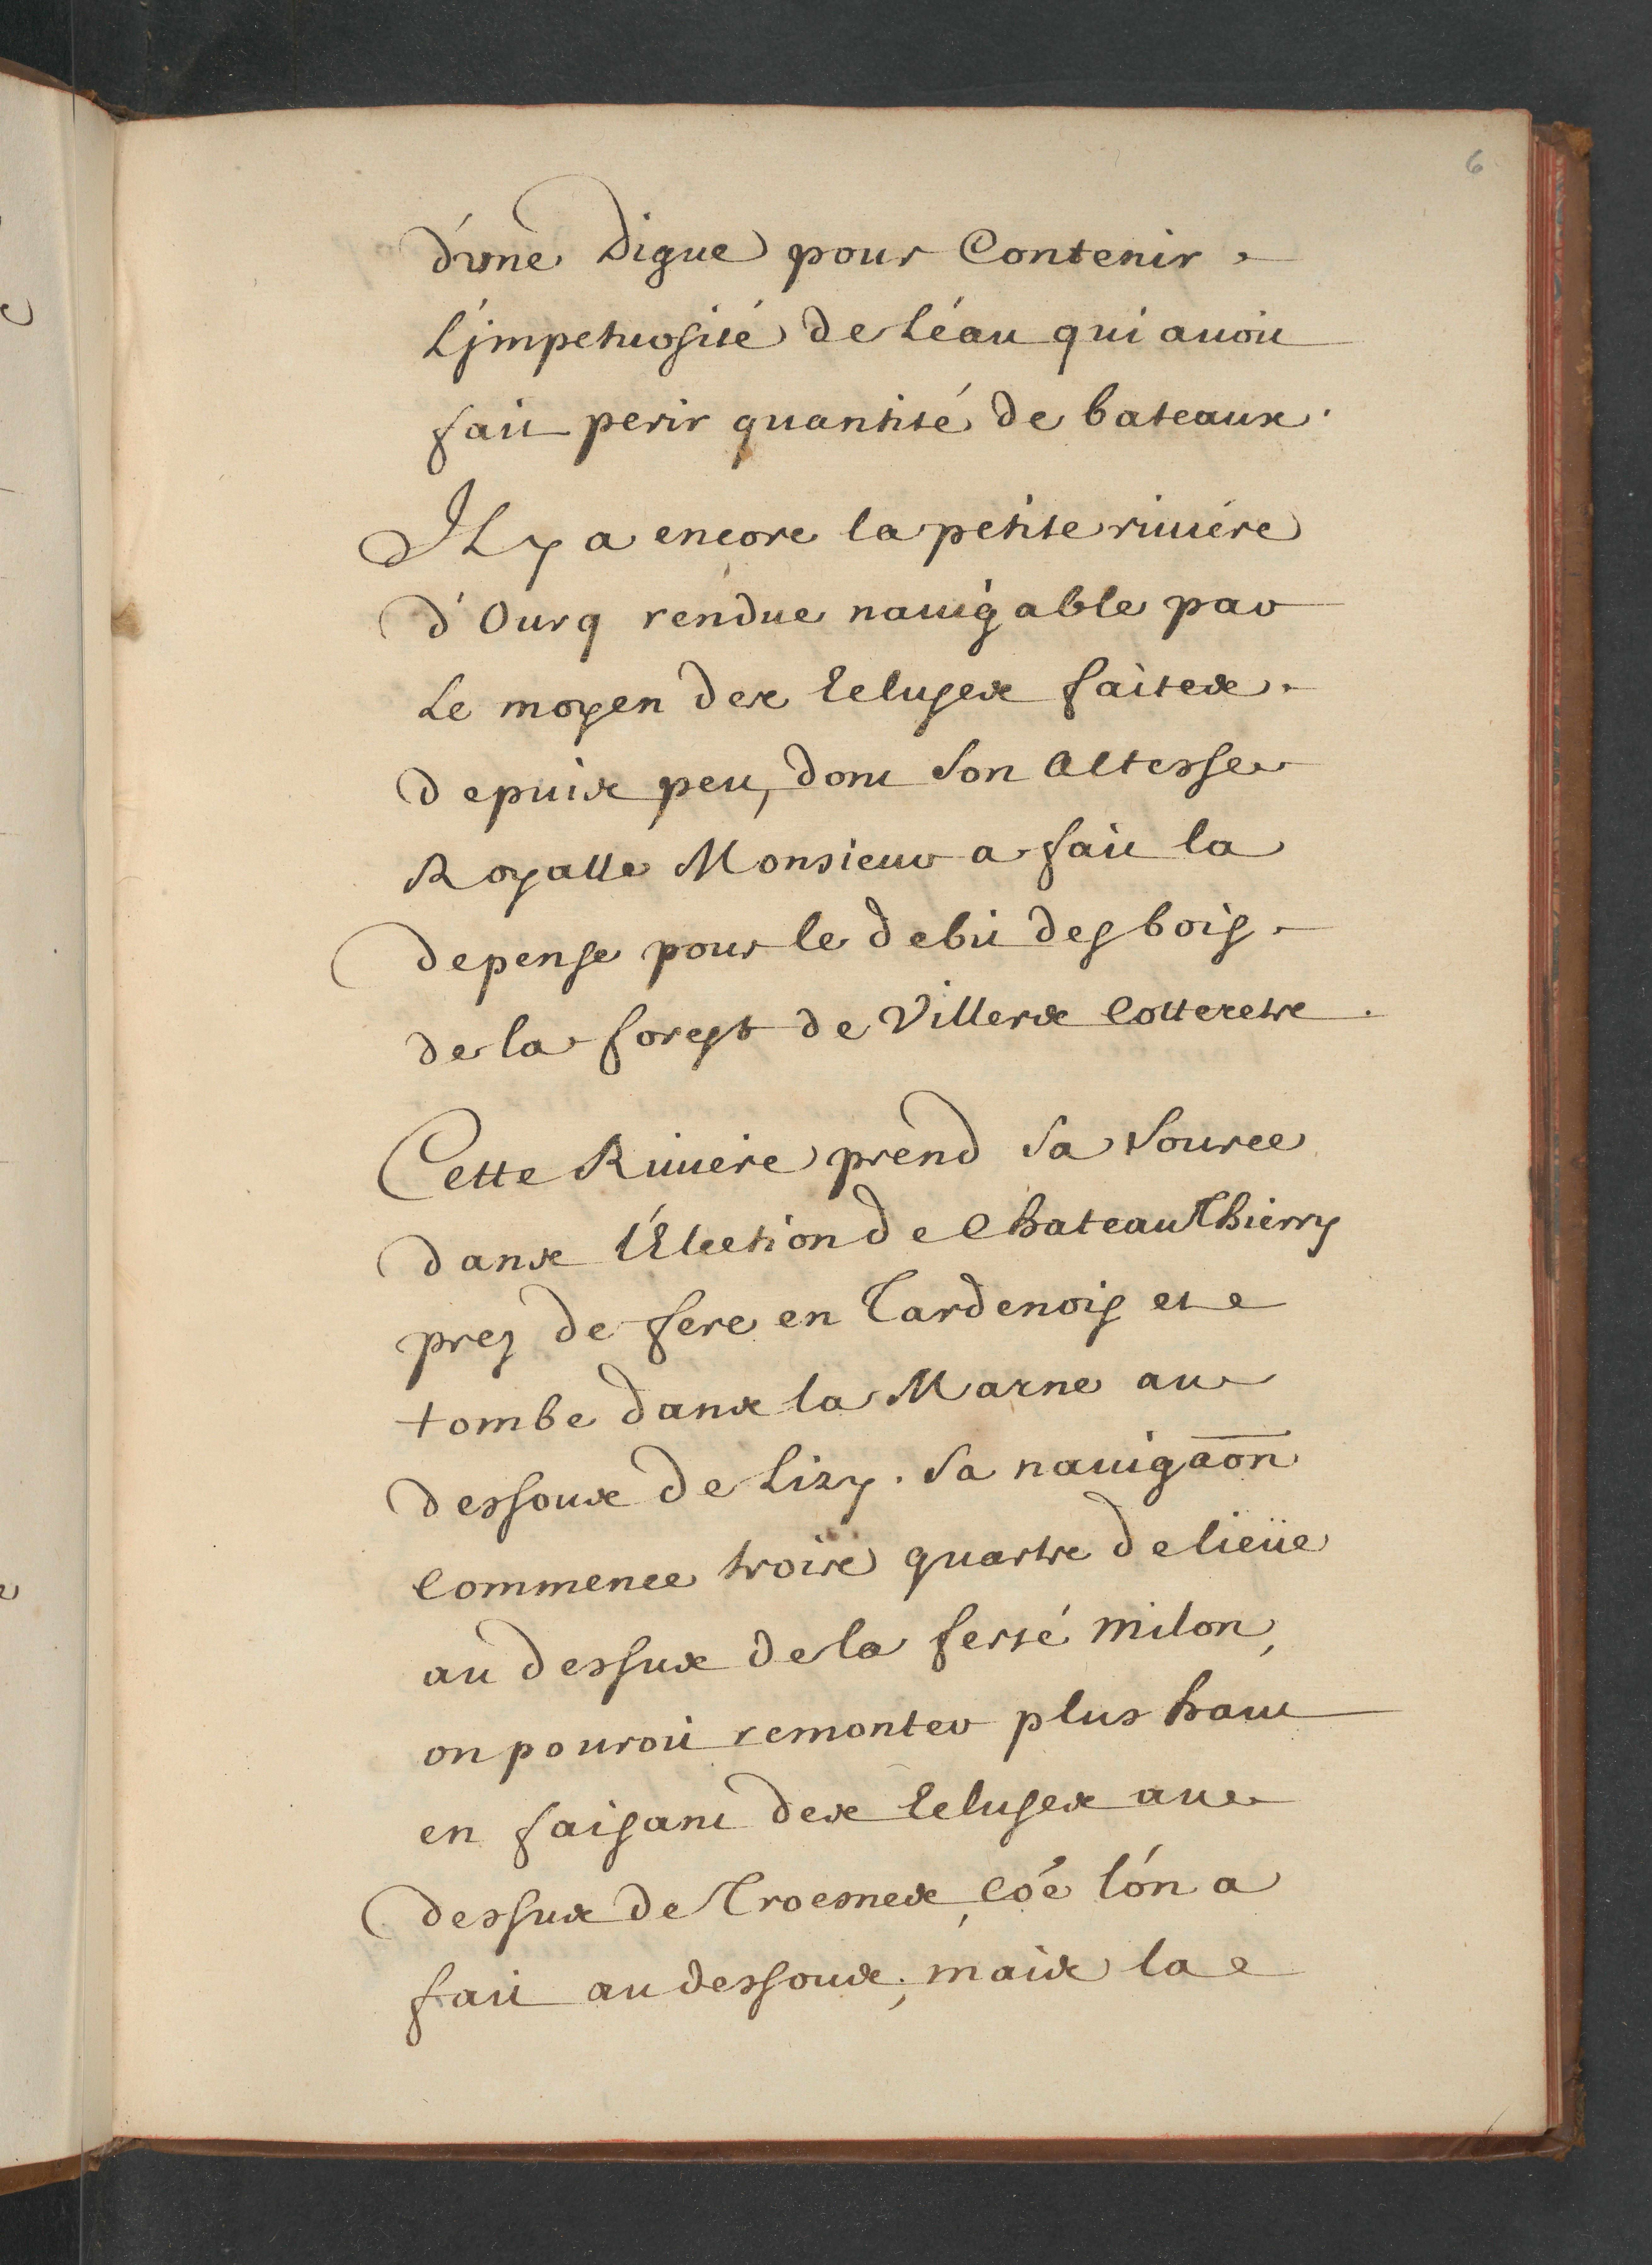 6
d'une Digue pour Contenir
L'jmpetuosité de L'éau qui auoit
fait perir quantité de bateaux.
JL y a encore la petite riuiére
d'Ourq rendue nauigable par
Le moyen des Ecluses faites
depuis peu, dont Son Altesse
Royalle Monsieur a fait la
depense pour le debit des bois
de la forest de Villers Cotterets.
Cette Riuiere prend Sa Source
dans l'Election de Chateau Thierry
prez de fere en Tardenois et
tombe dans la Marne au
dessous de Lizy. Sa nauigaõn
Commence trois quarts de lieüe
au dessus de la ferté milon,
on pouroit remonter plus haut
en faisant des Ecluses au
dessus de Troesnes, Cõe l'ón a
fait au dessous; mais la